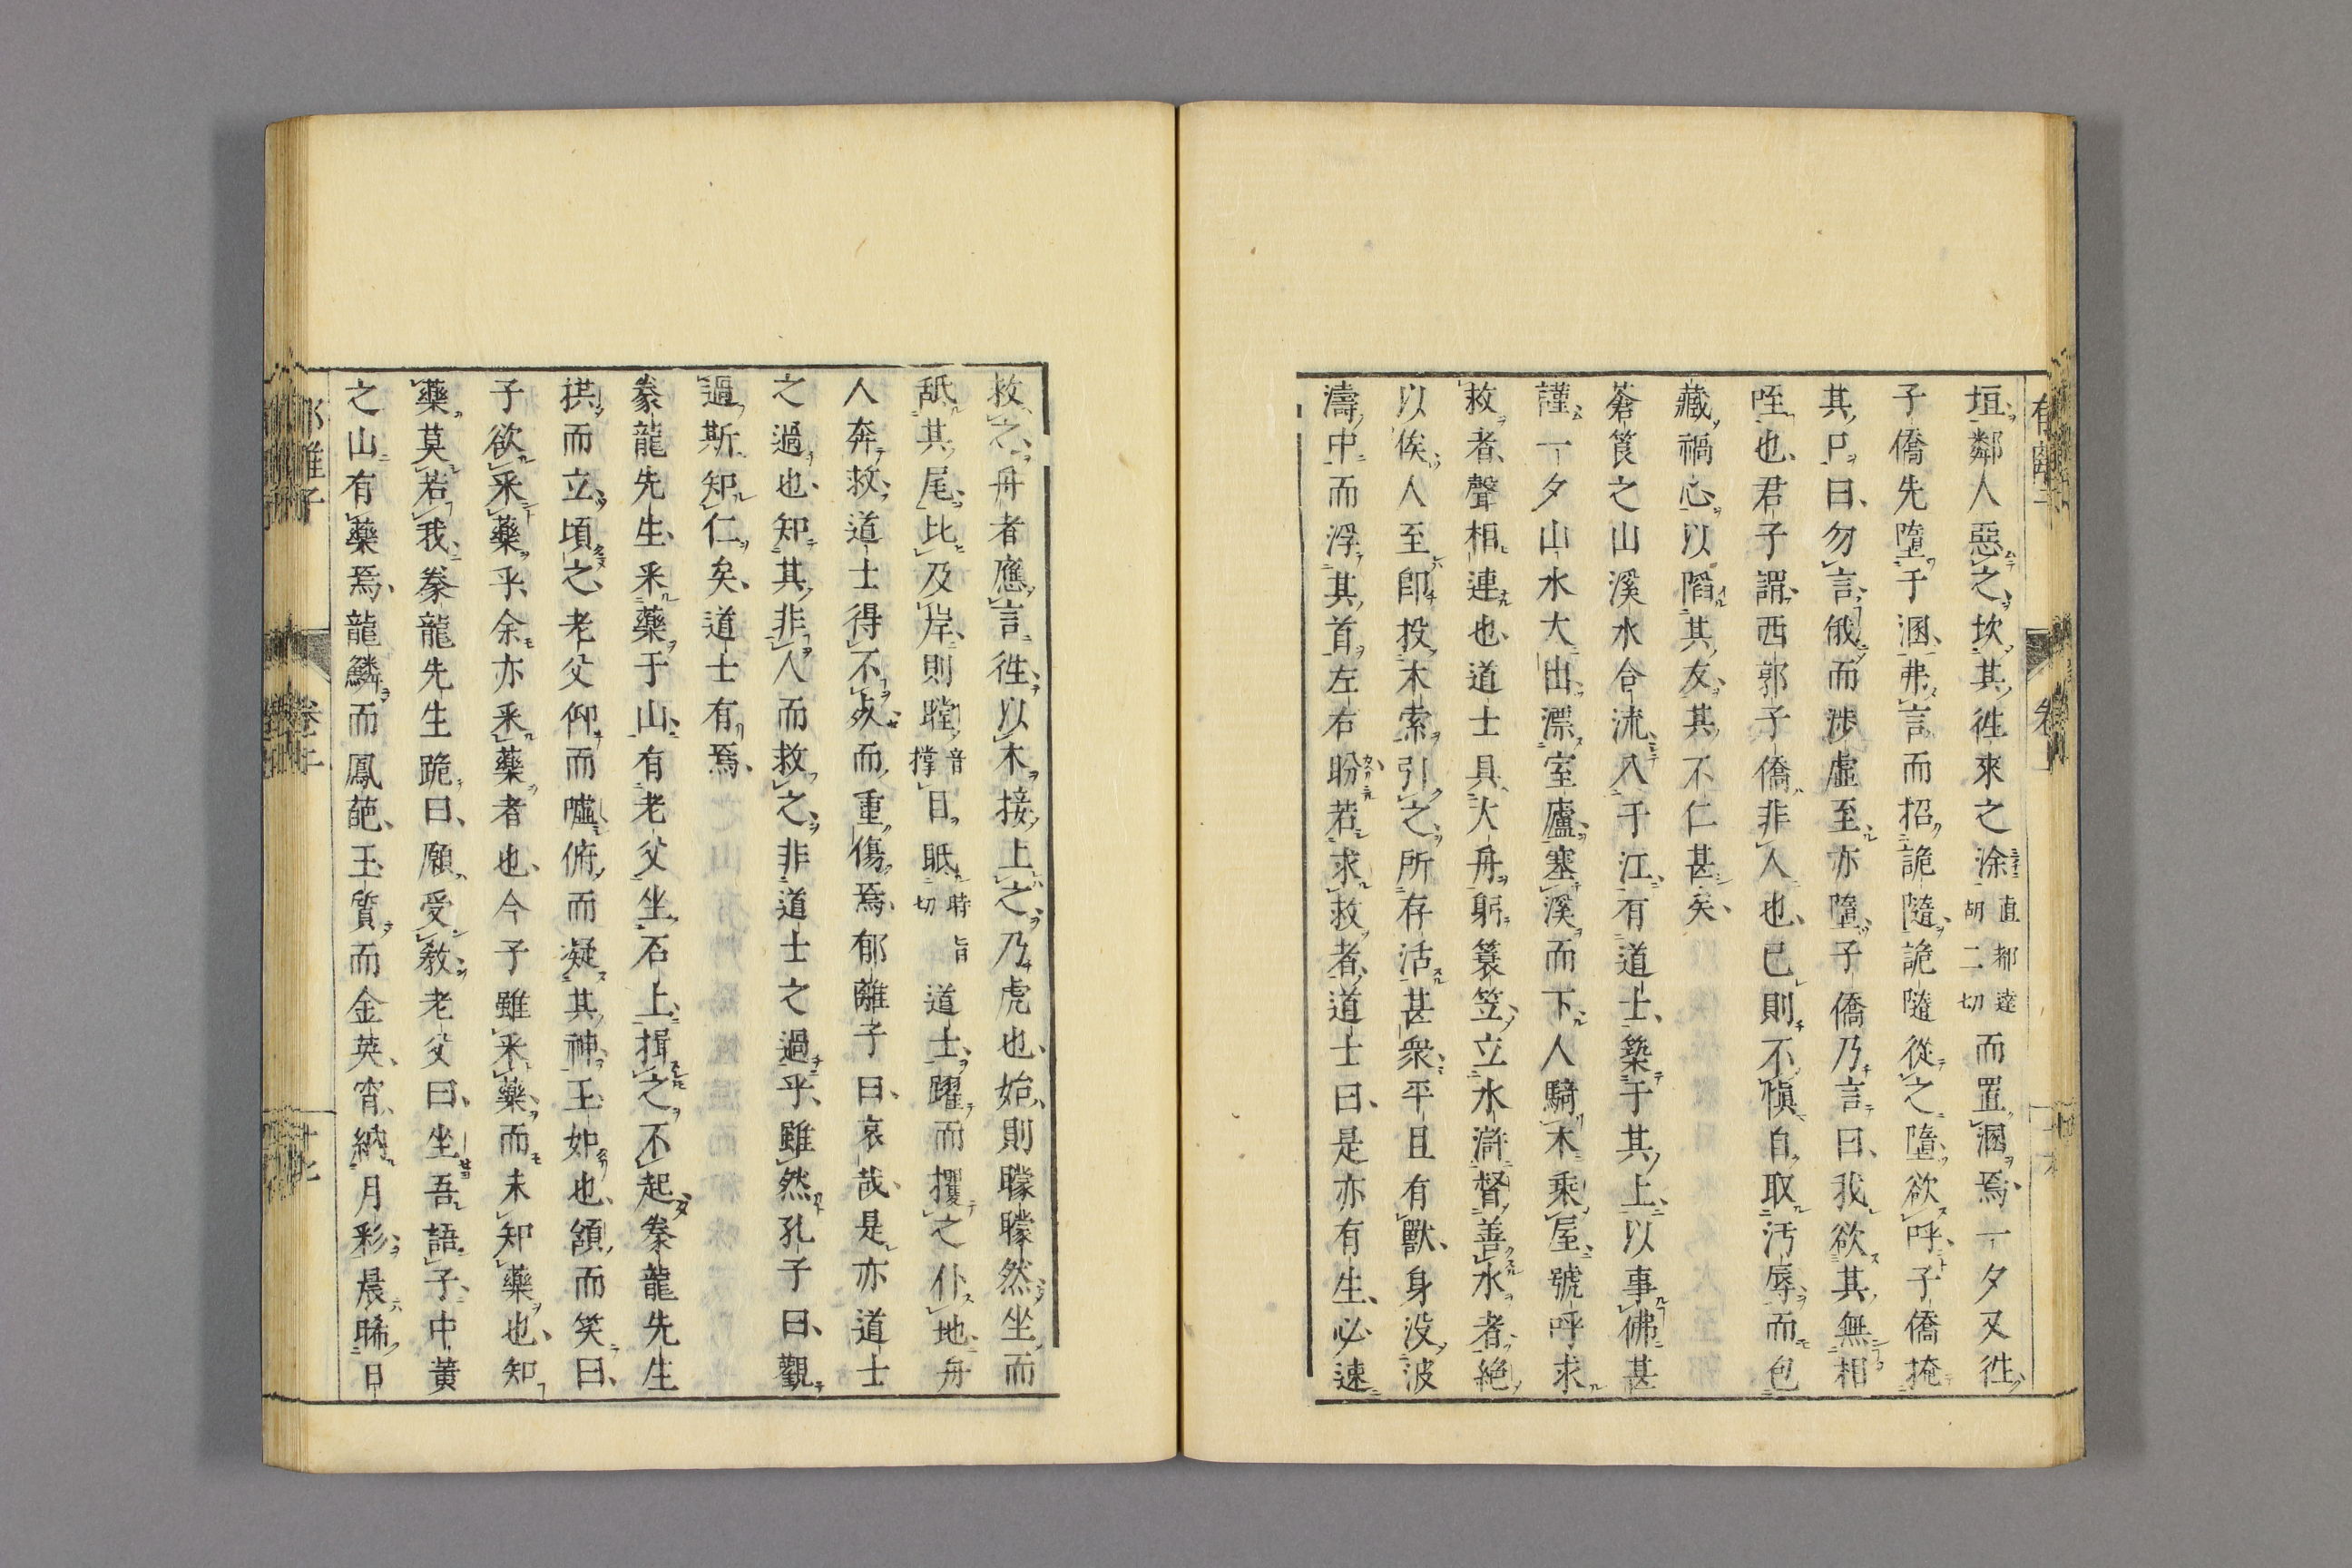 垣鄰人惡之坎其徃來之涂直都達胡二切而置溷焉一夕又徃
子僑先墮于溷弗言而招詭隨詭隨從之墮欲呼子僑掩
其口曰勿言俄而渉虛至亦墮子僑乃言曰我欲其無相
咥也君子謂西郭子僑非人也已則不慎自取汚辱而包
藏禍心以陷其友其不仁甚矣
蒼筤之山溪水合流入于江有道士築于其上以事佛甚
謹一夕山水大出漂室廬塞溪而下人騎木乘屋號呼求
救者聲相連也道士具大舟躬簔笠立水滸督善水者絕
以俟人至卽投木索引之所存活甚衆平旦有獸身没波
濤中而浮其首左右盼若求救者道士曰是亦有生必速
救之舟者應言徃以木接上之乃虎也始則矇矇然坐而
舐其尾比及岸則瞠音撑目眡時旨切道士躍而攫之仆地舟
人奔救道士得不死而重傷焉郁離子曰哀哉是亦道士
之過也知其非人而救之非道士之過乎雖然孔子曰觀
過斯知仁矣道士有焉
豢龍先生采藥于山有老父坐石上揖之不起豢龍先生
拱而立頃之老父仰而噓俯而凝其神玉如也頷而笑曰
子欲采藥乎余亦采藥者也今子雖采藥而未知藥也知
藥莫若我豢龍先生跪曰願受教老父曰坐吾語子中黃
之山有藥焉龍鱗而鳳葩玉質而金英宵納月彩晨晞日
郁離子
卷上
十七